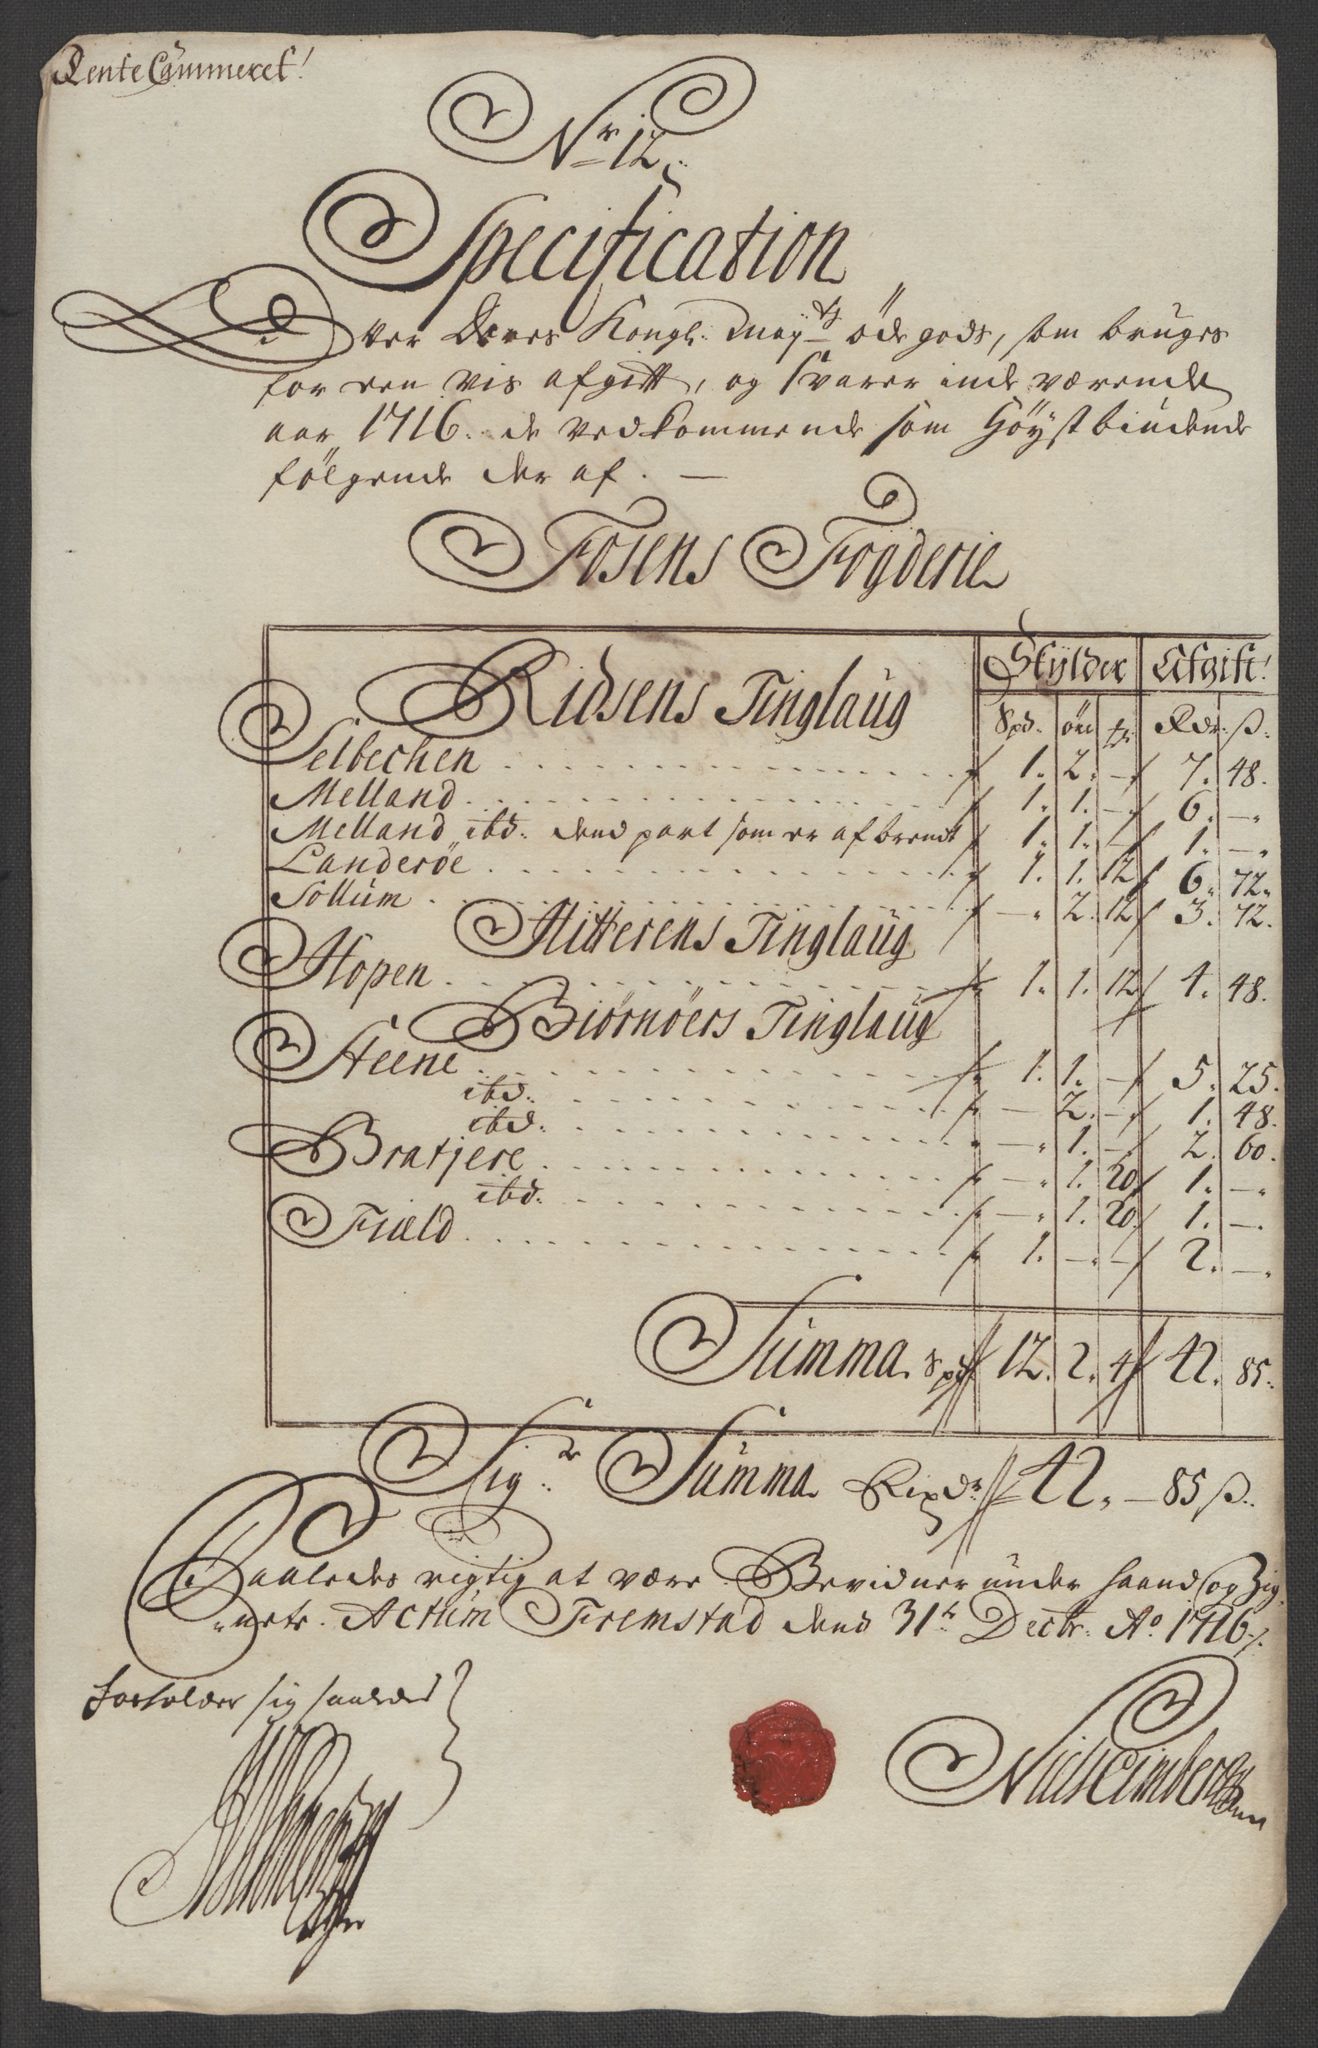 Rente Cammeret!
Nr 12.
Specification
Over Deres Kongl: Mayts öde gods, som bruges
for een vis afgift, og Svarer inde værende
aar 1716. de vedkommende som Höystbiudende
følgende der af. —
Fosens Fogderie
Skylder Afgift!
Ridsens Tinglaug Spd. öre Rdr. ß.
Selbechen 1. 2. — 7. 48.
Melland 1. 1. — 6. —
Melland ibd. dend part som er afbrendt 1. 1. — 1. —
Landeröe 1. 1. 12 6. 72.
Sollum — 2. 12 3. 72.
Hitterens Tinglaug
Hopen 1. 1. 12 4. 48.
Biörnöers Tinglaug
Steene 1. 1. — 5. 25.
ibd. — 2. — 1. 48.
ibd. — 1. — 2. 60.
Bratjere — 1. 20 1. —
ibd. — 1. 20 1. —
Field 1. — — 2. —
Summa Spd 12. 2. 4 42. 85.
Sigr Summa Rixdr 42. — 85 ß.
Saaledes rigtig at være Bevidner under haand og Zig-
nete. Actum Fremstad dend 31te Decbr. Ao 1716.
forholder sig saaledes